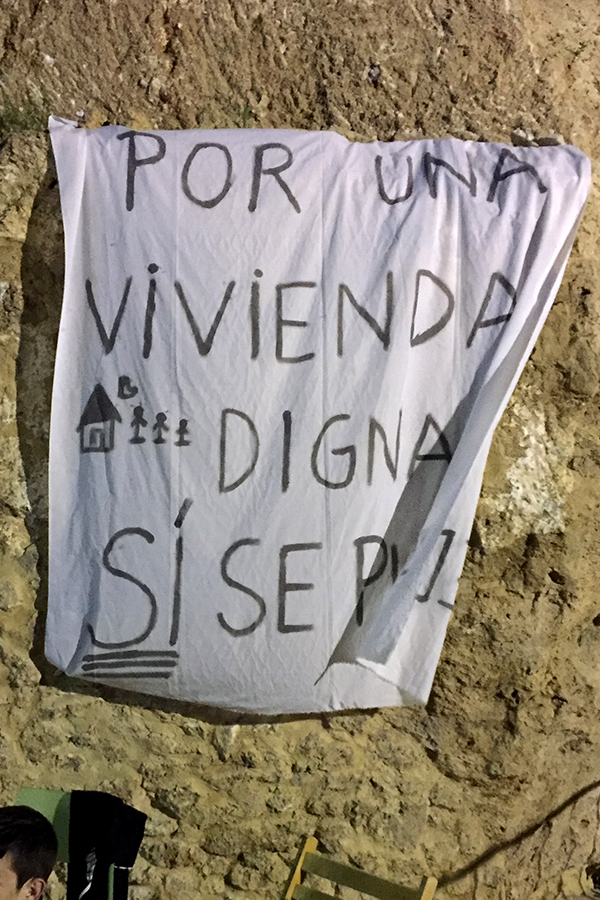 POR UNA
VIVIENDA
DIGNA
SÍ SE